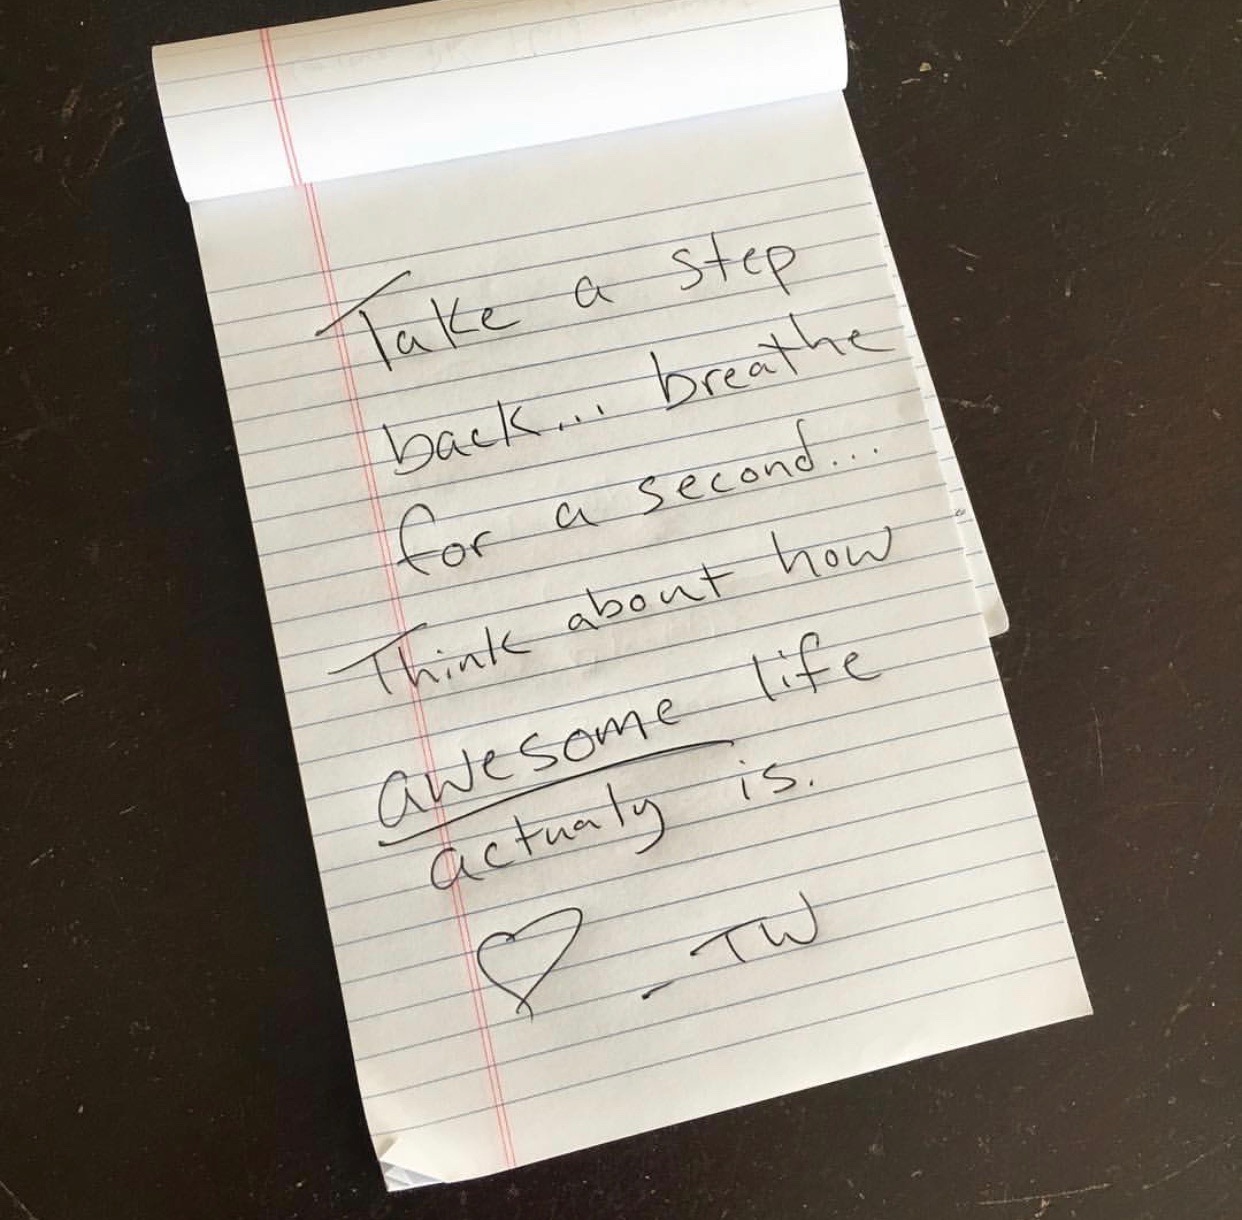 Take a step
back... breathe
for a second...
Think about how
awesome life
actualy is.
♡ -TW